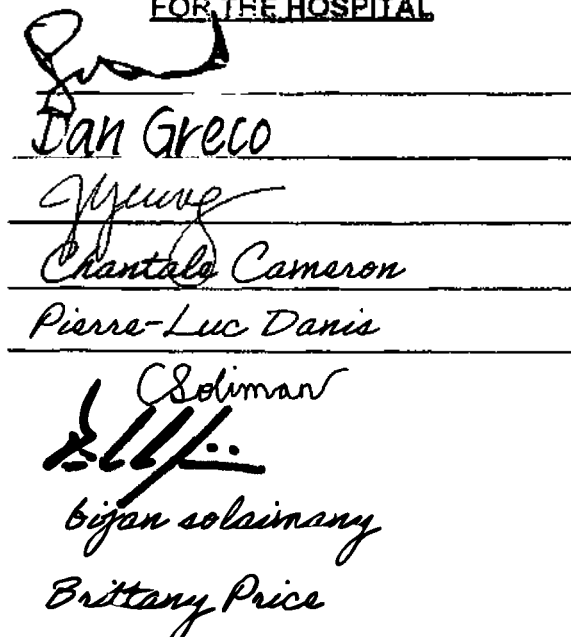 FOR THE HOSPITAL
Dan Greco
JYeung
Chantale Cameron
Pierre-Luc Danis
CSoliman
bijan solaimany
Brittany Price